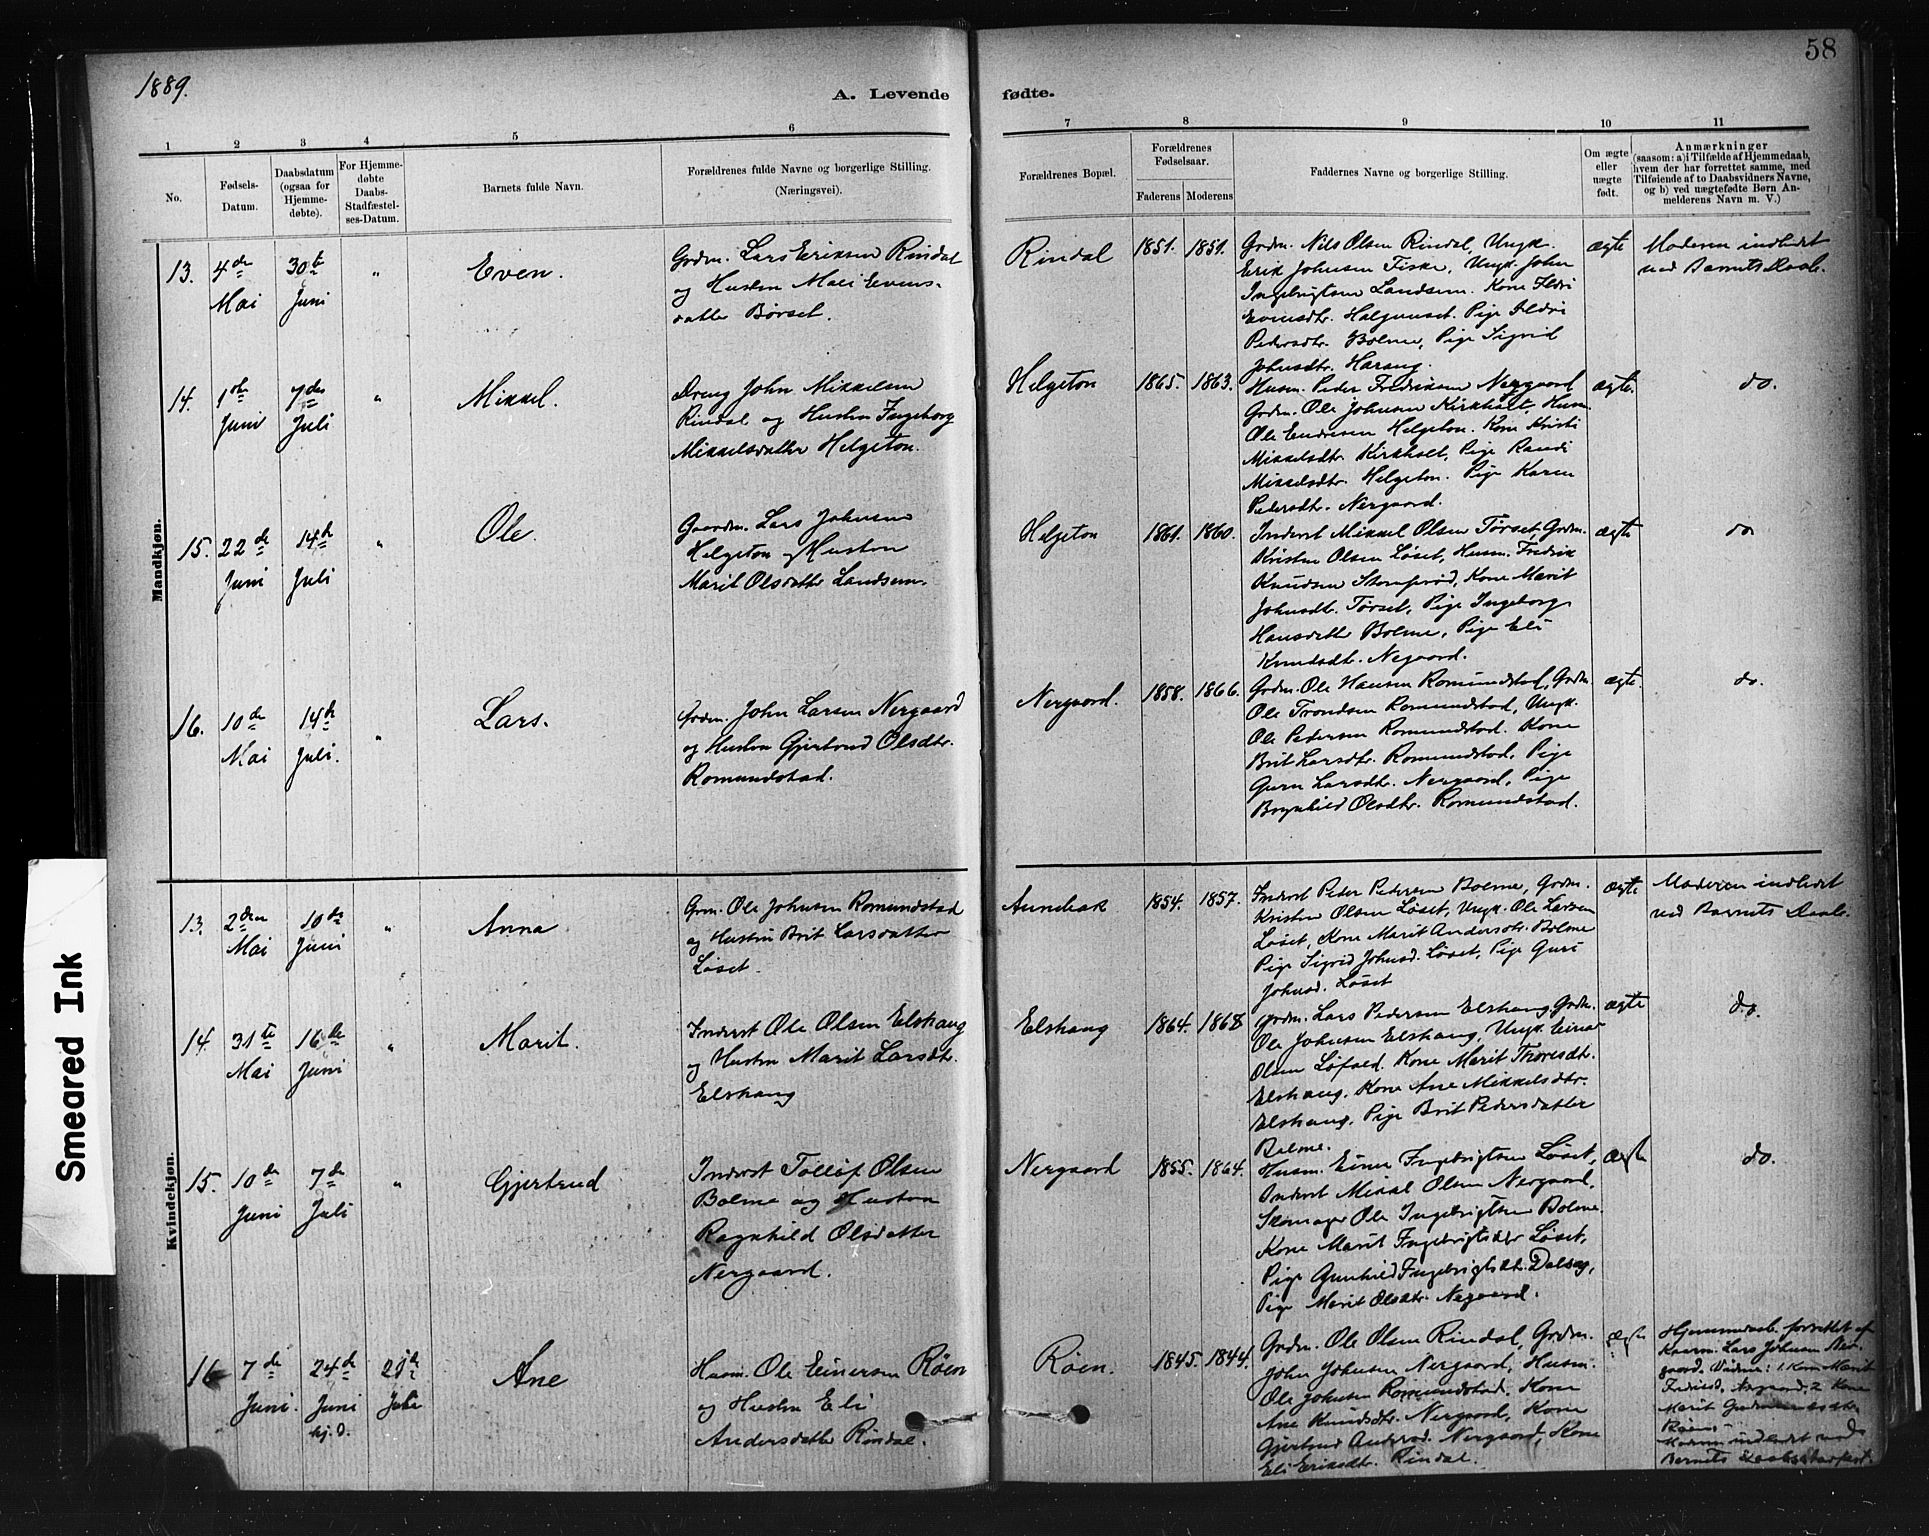 58
1889.
A. Levende fødte.
1 2 3 4 5 6 7 8 9 10 11
No.
Fødsels-Datum.
Daabsdatum (ogsaa for Hjemme-døbte).
For Hjemme-døbte Daabs-Stadfæstel-ses-Datum.
Barnets fulde Navn.
Forældrenes fulde Navne og borgerlige Stilling. (Næringsvei).
Forældrenes Bopæl.
Forældrenes Fødselsaar.
Faderens Moderens
Faddernes Navne og borgerlige Stilling.
Om ægte eller uægte født.
Anmærkninger
(saasom: a) i Tilfælde af Hjemmedaab,
hvem der har forrettet samme, med
Tilføiende af to Daabsvidners Navne,
og b) ved uægtefødte Børn An-
melderens Navn m. V.)
Mandkjøn.
13. 4de Mai 30te Juni " Even.
Grdm. Lars Eriksen Rindal
og Hustru Mali Evens-
datter Børset.
Rindal 1851. 1851.
Grdm. Nils Olsen Rindal, Ungk.
Erik Johnsen Fiske, Ungk. John
Ingebrigtsen Landsem. Kone Ildri
Evensdtr. Halgunset. Pige Ildri
Pedersdtr. Bolme, Pige Sigrid
Johnsdtr. Harang.
ægte
Moderen indledet
ved Barnets Daab.
14. 1ste Juni 7des Juli " Mikkel.
Dreng John Mikkelsen
Rindal og Hustru Ingeborg
Mikkelsdatter Helgeton.
Helgeton 1865. 1863.
Husm. Peder Fredriksen Nergaard
Grdm. Ole Johnsen Kirkholt, Husm.
Ole Endresen Helgeton. Kone Kristi
Mikkelsdtr. Kirkholt, Pige Randi
Mikkelsdtr. Helgeton. Pige Karen
Pedersdtr. Nergaard.
ægte.
do.
15. 22de Juni 14de Juli " Ole.
Gaardm. Lars Johnsen
Helgeton og Hustru
Marit Olsdatter Landsem.
Helgeton 1861. 1860.
Inderst Mikkel Olsen Tørset, Grdm.
Kristen Olsen Løset, Husm. Fredrik
Knudsen Stomprød, Kone Marit
Johnsdt. Tørset, Pige Ingeborg
Hansdatter Bolme, Pige Eli
Knudsdtr. Negaard.
ægte
do
16. 10de Mai 14de Juli. " Lars.
Grdm. John Larsen Nergaard
og Hustru Gjertrud Olsdtr.
Romundstad.
Nergaard. 1858. 1866.
Grdm. Ole Hansen Romundstad, Grdm.
Ole Trondsen Romundstad, Ungk.
Ole Pedersen Romundstad. Kone
Brit Larsdtr. Romundstad, Pige
Guru Larsdtr. Nergaard, Pige
Brynhild Olsdtr. Romundstad.
ægte.
do.
Kvindekjøn.
13. 2den Mai 10de Juni " Anna
Grm. Ole Johnsen Romundstad
og Hustru Brit Larsdatter
Løset.
1854. 1857.
Inderst Peder Pedersen Bolme, Grdm.
Kristen Olsen Løset, Ungk. Ole Larsen
Løset, Kone Marit Andersdtr. Bolme
Pige Sigrid Johnsd. Løset, Pige Guri
Johnsd. Løset
ægte
Moderen indledet
ved Barnets Daab.
14. 31te Mai 16de Juni " Marit.
Inderst Ole Olsen Elshaug
og Hustru Marit Larsdtr.
Elshaug
Elshaug 1864. 1868
Grdm. Lars Pedersen Elshaug, Grdm.
Ole Johnsen Elshaug, Ungk. Einar
Olsen Løfald. Kone Marit Thoresdtr.
Elshaug. Kone Ane Mikkelsdtr.
Elshaug. Pige Brit Pedersdatter
Bolme.
ægte
do.
15. 10de Juni 7de Juli " Gjertrud
Inderst Tollof Olsen
Bolme og Hustru
Ragnhild Olsdatter
Nergaard.
Nergaard 1855. 1864.
Husm. Einar Ingebrigtsen Løset,
Inderst Mikkel Olsen Nergaard,
Skomager Ole Ingebrigtsen Bolme.
Kone Marit Ingebrigtsdtr Løset,
Pige Gunhild Ingebrigtsdtr. Dalseg,
Pige Marit Olsdtr. Negaard.
ægte
do.
16 7de Juni. 24de Juni hj. d. 21de Juli Ane
Husm. Ole Einersen Røen
og Hustru Eli
Andersdatter Rindal.
Røen. 1845. 1844.
Grdm. Ole Olsen Rindal, Grdm.
John Johnsen Nergaard, Husm.
Ole Johnsen Romundstad. Kone
Ane Knudsdtr. Nergaard, Kone
Gjertrud Andersd. Nergaard, Kone
Eli Eriksdtr. Rindal.
ægte
Hjemmedaab forrettet af
Lars Johnsen Ner-
gaard. Vidner: 1. Kone Marit
Nergaard, 2 Kone
Marit
Røen.
indledet ved
Barnets
Smeared Ink